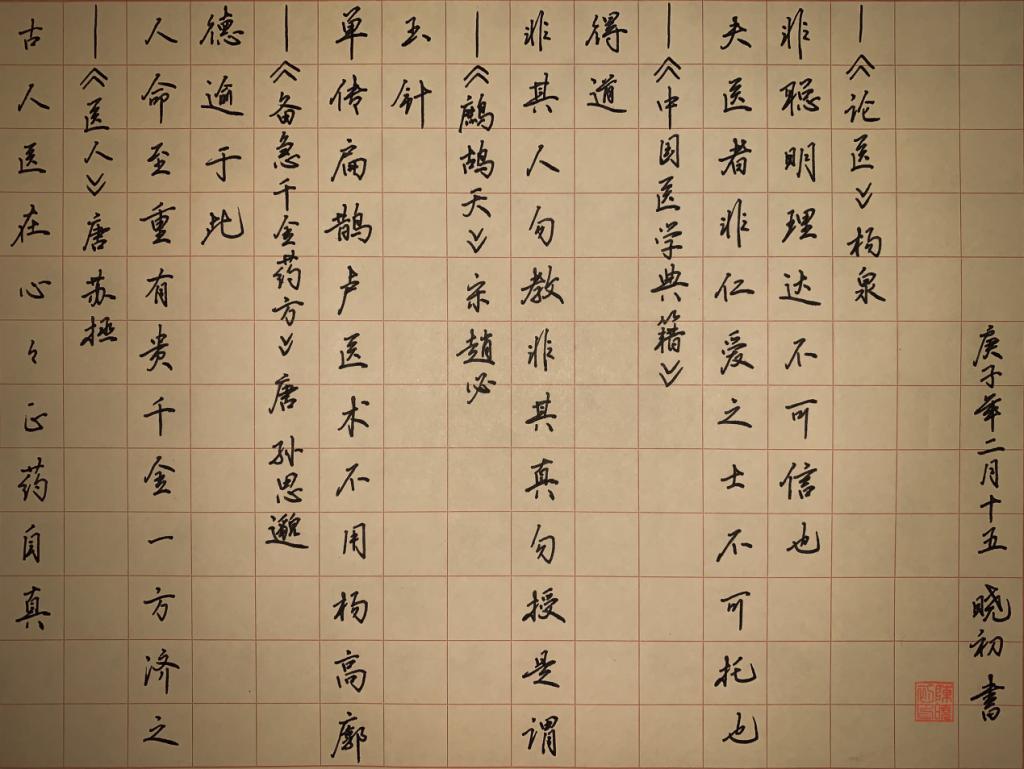 古人医在心々正药自真
—《医人》唐 苏拯
人命至重有贵千金一方济之
德逾于此
—《备急千金药方》唐 孙思邈
单传扁鹊卢医术不用杨高廓
玉针
—《鹧鸪天》宋 赵必
非其人勿教非其真勿授是谓
得道
—《中国医学典籍》
夫医者非仁爱之士不可托也
非聪明理达不可信也
—《论医》杨泉
庚子年二月十五 晓初 书